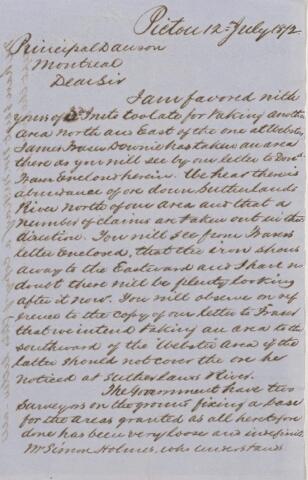 Pictou 12th July 1872
Principal Dawson
Montreal
Dear Sir
I am favored with
yours of Inst too late for taking another
area North or East of the one at Webster
James Fraser Downie has taken an area
there as you will see by our letter to
Fraser Enclosed herein. We hear there is
abundance of ore down Sutherlands
River North of our area and that a
number of claims are taken out in the
direction. You will see from Frasers
letter Enclosed, that the iron shows
away to the Eastward and I have no
doubt there will be plenty looking
after it now. You will observe on re
ference to the copy of our letter to Fraser
that we intend taking an area to the
southward of the Webster Area if the
latter should not cover the one he
noticed at Sutherlands River.
The Government have two
Surveyors on the ground fixing a base
for the areas granted as all heretofore
done has been very loose and indefinite
Mr Simon Holmes, who understands